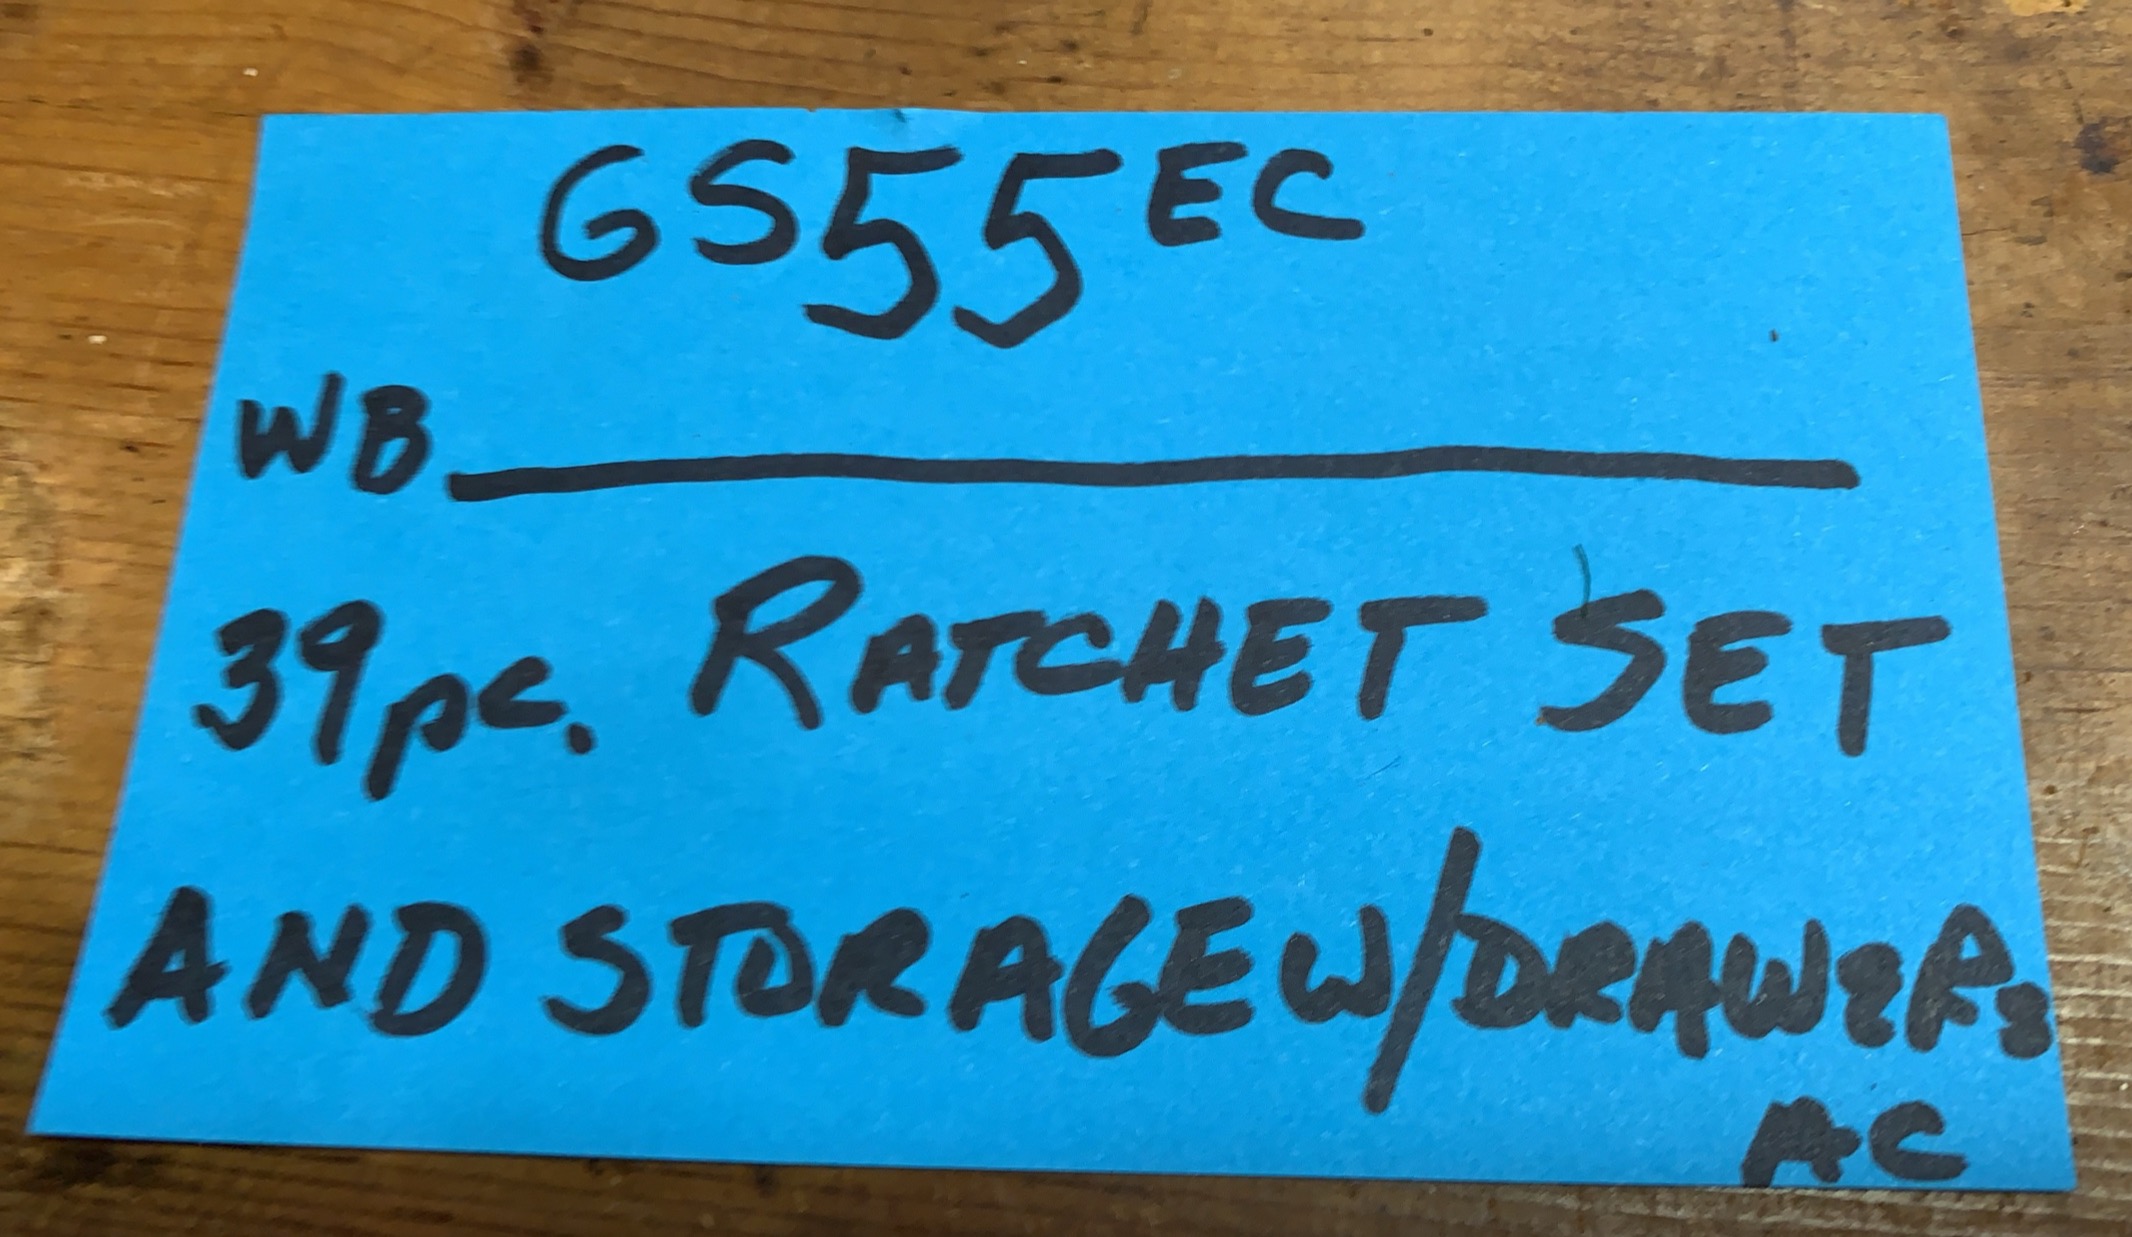 GS55EC
WB
39pc. RATCHET SET
AND STORAGE W/DRAWERS
AC